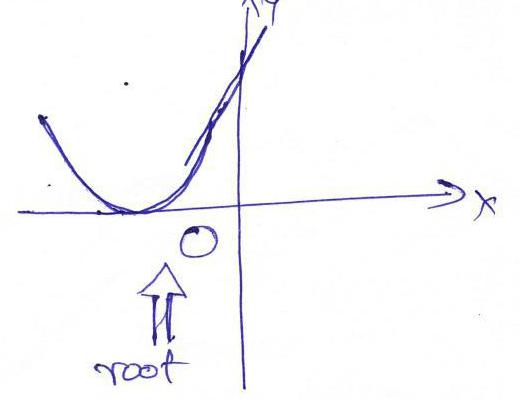 Y
X
O
root